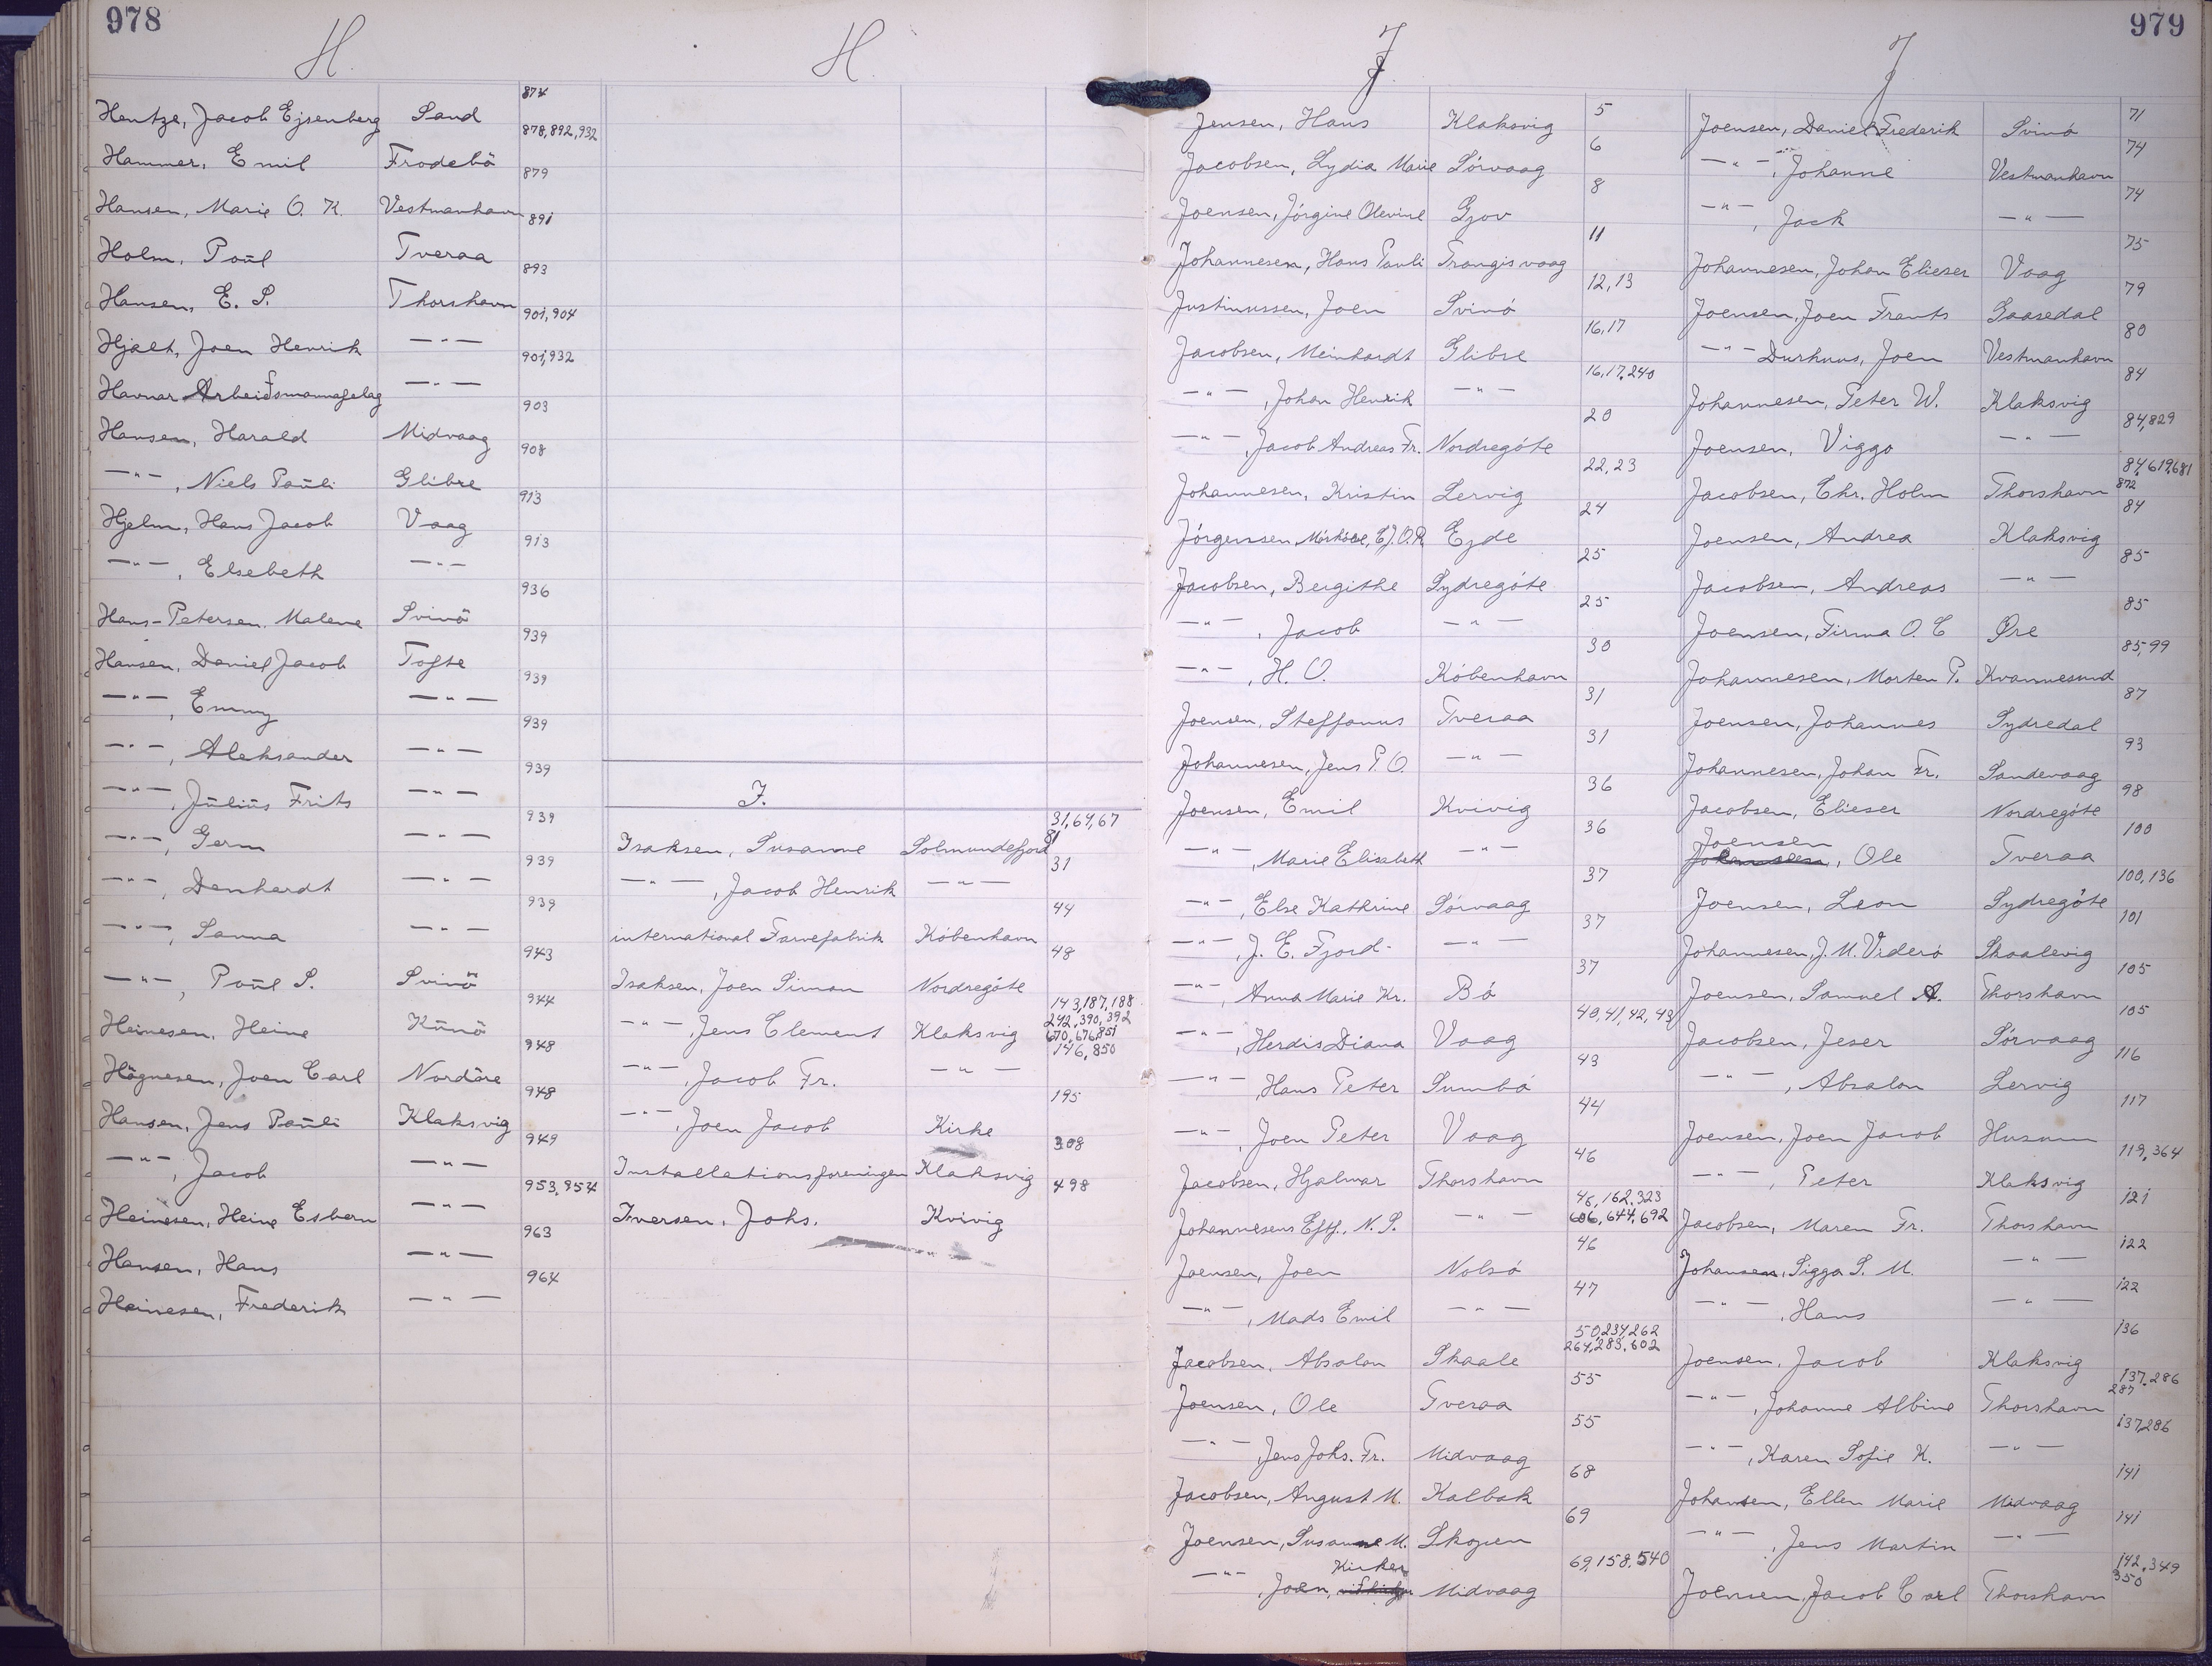 978
H.
H.
Hentze, Jacob Ejsenberg Sand 874
Hammer, Emil Frodebö 878,892,932
Hansen, Marie O. K. Vestmanhavn 879
Holm, Poul Tveraa 891
Hansen, E. S. Thorshavn 893
Hjalt, Joen Henrik —"— 901,904
Havnar Arbeidsmannafelag —"— 901,932
Hansen, Harald Midvaag 903
—"—, Niels Pauli Glibre 908
Hjelm, Hans Jacob Vaag 913
—"—, Elsebeth —"— 913
Hans-Petersen. Malene Svinö 936
Hansen, Daniel Jacob Tofte 939
—"—, Emmy —"— 939
—"—, Aleksander —"— 939
—"—, Julius Frits —"— 939
—"—, Germ —"— 939
—"—, Denhardt —"— 939
—"—, Sanna —"— 939
—"—, Poul S. Svinö 943
Heinesen, Heine Kunö 944
Högnesen, Joen Carl Nordöre 948
Hansen, Jens Pauli Klaksvig 948
—"—, Jacob —"— 949
Heinesen, Heine Esbern —"— 953,954
Hansen, Hans —"— 963
Heinesen, Frederik —"— 964
I.
Isaksen, Susanne Solmundefjord 31,64,67
81
—"—, Jacob Henrik —"— 31
international Farvefabrik Köbenhavn 44
Isaksen, Joen Simon Nordregöte 48
—"—, Jens Clement Klaksvig 143,187,188
242,390,392
670,676,851
—"—, Jacob Fr. —"— 146,850
—"—, Joen Jacob Kirke 195
Installationsforeningen Klaksvig 308
Iversen, Johs. Kvivig 498
979
J
J
Jensen, Hans Klaksvig 5
Jacobsen, Lydia Marie Sörvaag 6
Joensen, Jörgine Olevine Gjov 8
Johannesen, Hans Pauli Trangisvaag 11
Justinussen, Joen Svinö 12,13
Jacobsen, Meinhardt Glibre 16,17
—"—, Johan Henrik —"— 16,17,240
—"—, Jacob Andreas Fr. Nordregöte 20
Johannesen, Kristin Lervig 22,23
Jörgenssen, E.J.O.R. Ejde 24
Jacobsen, Bergithe Sydregöte 25
—"—, Jacob —"— 25
—"—, H. O. Köbenhavn 30
Joensen, Steffanus Tveraa 31
Johannesen, Jens P. O. —"— 31
Joensen, Emil Kvivig 36
—"—, Marie Elisabeth —"— 36
—"—, Else Kathrine Sörvaag 37
—"—, J. E. Fjord- —"— 37
—"—, Anna Marie Kr. Bö 37
—"—, Herdis Diana Vaag 40,41,42,43
—"—, Hans Peter Sumbö 43
—"—, Joen Peter Vaag 44
Jacobsen, Hjalmar Thorshavn 46
Johannesens Eftf., N. S. —"— 46,162,323
606,644,692
Joensen, Joen Nolsö 46
—"—, Mads Emil —"— 47
Jacobsen, Absalon Skaale 50,234,262
264,283,602
Joensen, Ole Tveraa 55
—"—, Jens Johs. Fr. Midvaag 55
Jacobsen, August M. Kalbak 68
Joensen, Susanne M. Skopen 69
Kirker
—"—, Joen, Midvaag 69,158,540
Joensen, Daniel Frederik Svinö 71
—"—, Johanne Vestmanhavn 74
—"—, Jack —"— 74
Johannesen, Johan Elieser Vaag 75
Joensen, Joen Frants Saasedal 79
—"— Durhuus, Joen Vestmanhavn 80
Johannesen, Peter W. Klaksvig 84
Joensen, Viggo —"— 84,829
Jacobsen, Chr. Holm Thorshavn 84,619,681
872
Joensen, Andrea Klaksvig 84
Jacobsen, Andreas —"— 85
Joensen, Firma O. C Øre 85
Johannesen, Morten P. Kvannesund 85,99
Joensen, Johannes Sydredal 87
Johannesen, Johan Fr. Sandevaag 93
Jacobsen, Elieser Nordregöte 98
Joensen
, Ole Tveraa 100
Joensen, Leon Sydregöte 100,136
Johannesen, J. M. Viderö Skaalevig 101
Joensen, Samuel A. Thorshavn 105
Jacobsen, Jeser Sörvaag 105
—"—, Absalon Lervig 116
Joensen, Joen Jacob Husum 117
—"—, Peter Klaksvig 119,364
Jacobsen, Maren Fr. Thorshavn 121
Johansen, Sigga S. M. —"— 122
—"—, Hans —"— 122
Joensen, Jacob Klaksvig 136
—"—, Johanne Albine Thorshavn 137,286
287
—"—, Karen Sofie K. —"— 137,286
Johansen, Ellen Marie Midvaag 141
—"—, Jens Martin —"— 141
Joensen, Jacob Carl Thorshavn 142,349
350